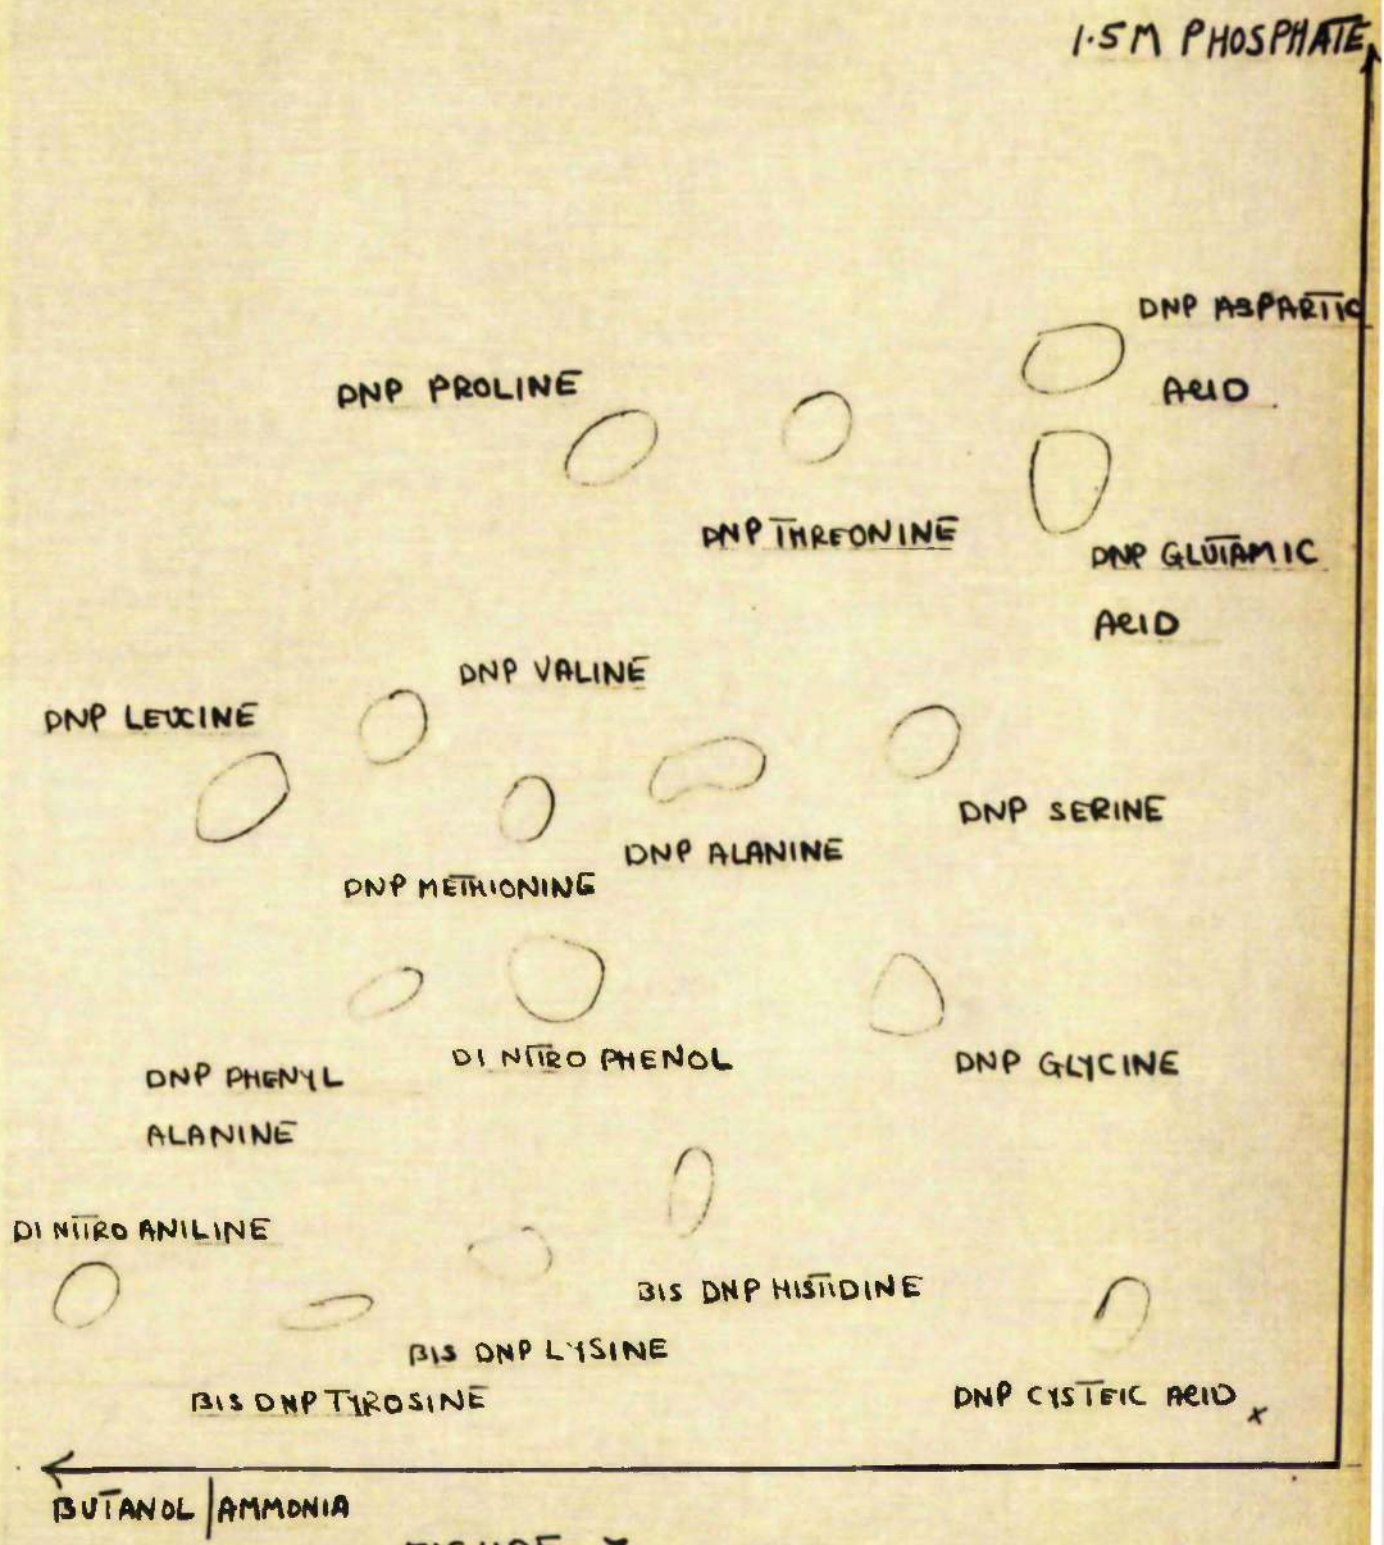 1.5M PHOSPHATE
DNP ASPARTIC
ACID
DNP PROLINE
DNP THREONINE
DNP GLUTAMIC
ACID
DNP VALINE
DNP LEUCINE
DNP SERINE
DNP ALANINE
DNP METHIONINE
DI NITRO PHENOL
DNP GLYCINE
DNP PHENYL
ALANINE
DI NITRO ANILINE
BIS DNP HISTIDINE
BIS DNP LYSINE
BIS DNP TYROSINE
DNP CYSTEIC ACID
x
BUTANOL | AMMONIA